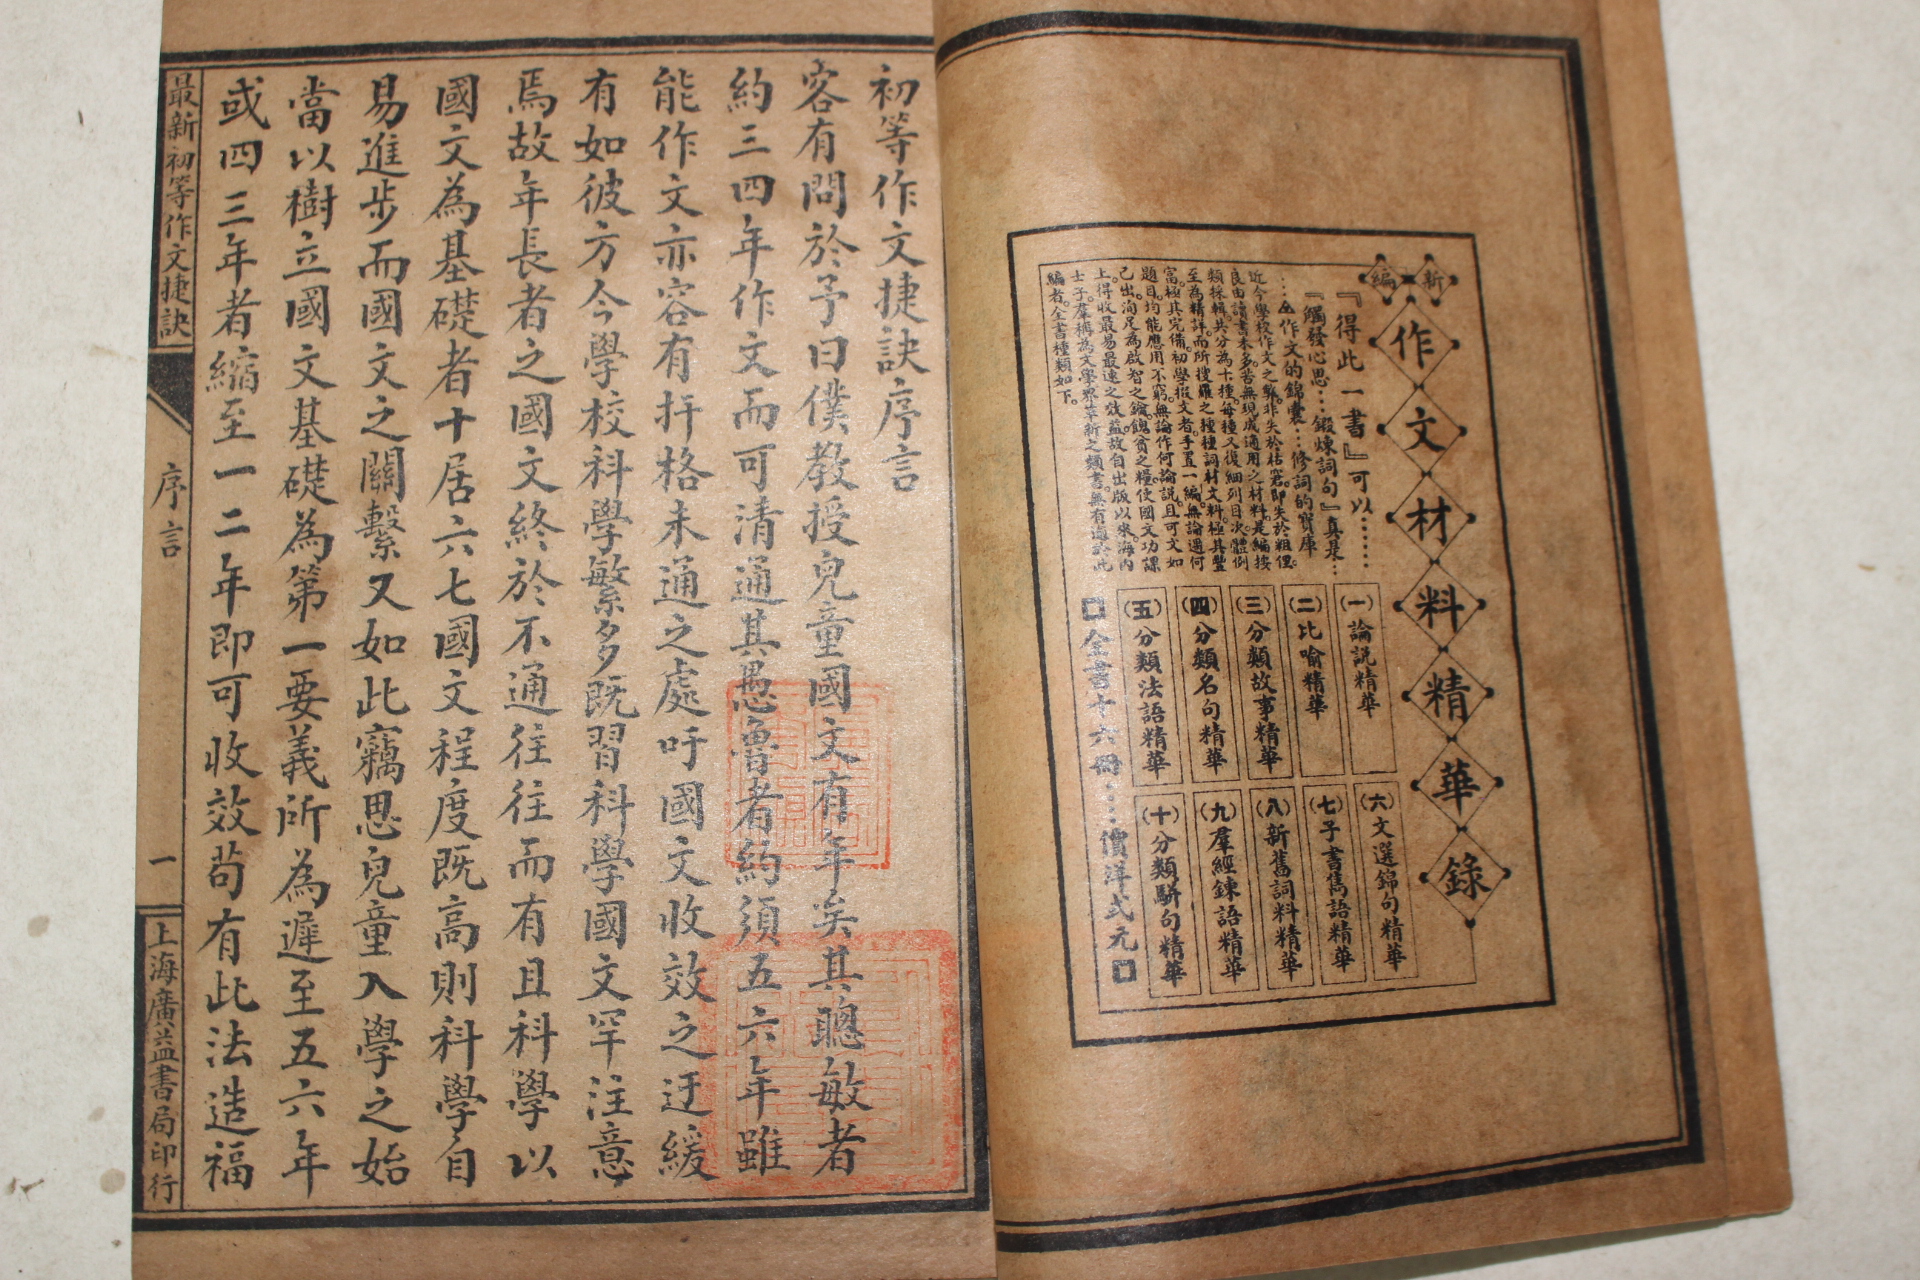 新編
作文材料精華錄
『得此一書』可以……
『觸發心思…鍛煉詞句』真是…
…△作文的錦囊…修詞的寶庫
近今學校作文之弊非失於枯窘即失於粗俚
良由讀書未多苦無現成適用之材料是編按
類採輯共分為十種每種又復細列目次體例
至為精詳而所搜羅之種種詞材文料極其豐
富極其完備初學撰文者手置一編無論遇何
題目均能應用不窮無論作何論說且可文如
己出洵足為啟智之鑰飽貧之糧使國文功課
上得收最易最速之效益故自出版以來海內
士子羣稱為文學界革新之類書無有過於此
編者全書種類如下
(一)論說精華
(二)比喻精華
(三)分類故事精華
(四)分類名句精華
(五)分類法語精華
(六)文選錦句精華
(七)子書雋語精華
(八)新舊詞料精華
(九)羣經鍊語精華
(十)分類駢句精華
全書十六冊……價洋弍元
初等作文捷訣序言
客有問於予曰僕教授兒童國文有年矣其聰敏者
約三四年作文而可清通其愚魯者約須五六年雖
能作文亦容有扞格未通之處吁國文收效之迂緩
有如彼方今學校科學繁多既習科學國文罕注意
焉故年長者之國文終於不通往往而有且科學以
國文為基礎者十居六七國文程度既高則科學自
易進步而國文之關繫又如此竊思兒童入學之始
當以樹立國文基礎為第一要義所為遲至五六年
或四三年者縮至一二年即可收效苟有此法造福
最新初等作文捷訣
序言
一
上海廣益書局印行